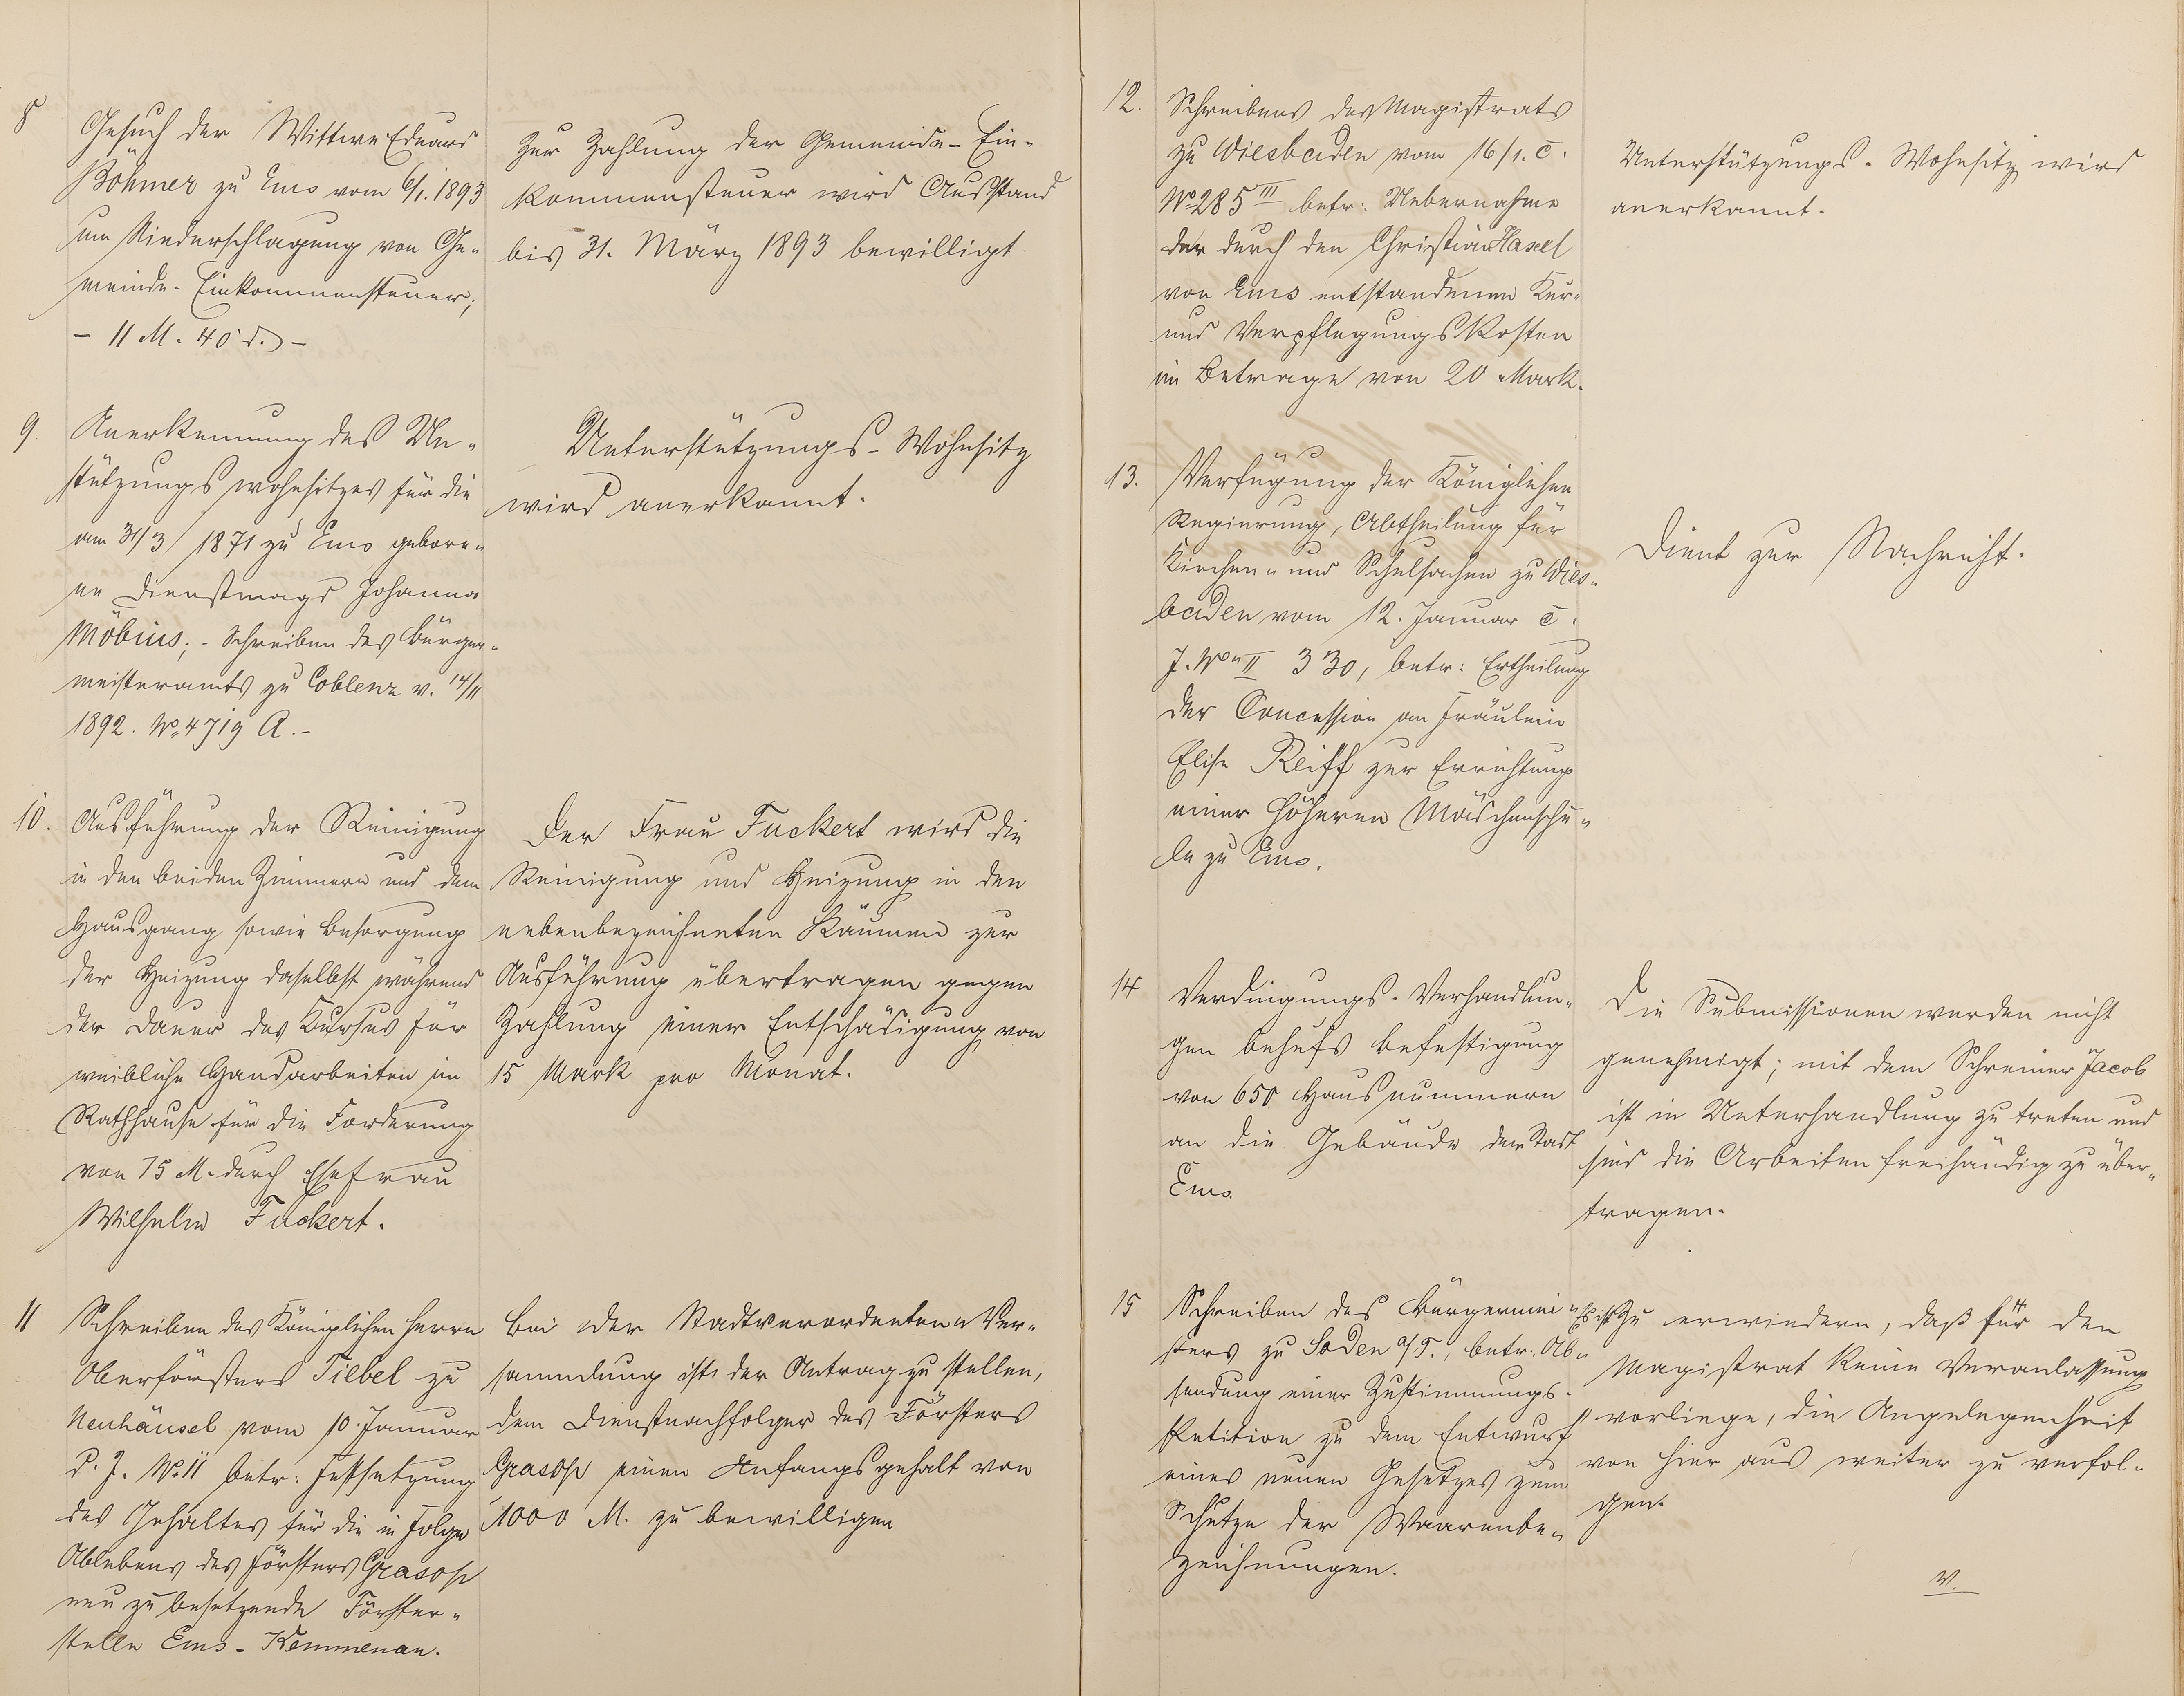 8
Gesuch der Wittwe Eduard
Böhmer zu Ems vom 6/1. 1893
um Niederschlagung von Ge-
meinde-Einkommensteuer;
- 11 M. 40 d. -
Zur Zahlung der Gemeinde-Ein-
kommensteuer wird Ausstand
bis 31. März 1893 bewilligt.
9.
Anerkennung des Un-
stützungswohnsitzes für die
am 31/3 1871 zu Ems gebore-
ne Dienstmagd Johanna
Möbius; - Schreiben des Bürger-
meisteramts zu Coblenz v. 14/11
1892. No. 4719 A. -
Unterstützungs-Wohnsitz
wird anerkannt.
10.
Ausführung der Reinigung
in den beiden Zimmern und dem
Hausgang sowie Besorgung
der Heizung daselbst während
der Dauer des Kursus für
weibliche Handarbeiten im
Rathhause für die Forderung
von 15 M. durch Ehefrau
Wilhelm Fuckert.
Der Frau Fuckert wird die
Reinigung und Heizung in den
nebenbezeichneten Räumen zur
Ausführung übertragen gegen
Zahlung einer Entschädigung von
15 Mark pro Monat.
11
Schreiben des Königlichen Herrn
Oberförsters Tiebel zu
Neuhäusel vom 10. Januar
d. J. No. 11 betr: Festsetzung
des Gehaltes für die in Folge
Ablebens des Försters Grasoß
neu zu besetzende Förster-
stelle Ems-Kemmenau.
Bei der Stadtverordneten-Ver-
sammlung ist der Antrag zu stellen,
dem Dienstnachfolger des Försters
Grasoß einen Anfangsgehalt von
1000 M. zu bewilligen
12.
Schreibens des Magistrats
zu Wiesbaden vom 16/1. c.
No 285 III betr: Uebernahme
der durch den Christian Hasel
von Ems entstandenen Kur-
und Verpflegungskosten
im Betrage von 20 Mark.
Unterstützungs-Wohnsitz wird
anerkannt.
13.
Verfügung der Königlichen
Regierung, Abtheilung für
Kirchen- und Schulsachen zu Wies-
baden vom 12. Januar c.
J. No II 330, betr: Ertheilung
der Concession an Fräulein
Elise Reiff zur Errichtung
einer höheren Mädchenschu-
le zu Ems.
Dient zur Nachricht.
14
Verdingungs-Verhandlun-
gen behufs Befestigung
von 650 Hausnummern
an die Gebäude der Stadt
Ems.
Die Submissionen werden nicht
genehmigt; mit dem Schreiner Jacob
ist in Unterhandlung zu treten und
sind die Arbeiten freihändig zu über-
tragen.
15
Schreiben des Bürgermei-
sters zu Soden a/T., betr: Ab-
sendung einer Zustimmungs-
Petition zu dem Entwurf
eines neuen Gesetzes zum
Schutze der Waarenbe-
zeichnungen.
Es ist zu erwiedern, daß für den
Magistrat keine Veranlassung
vorliege, die Angelegenheit
von hier aus weiter zu verfol-
gen.
v.